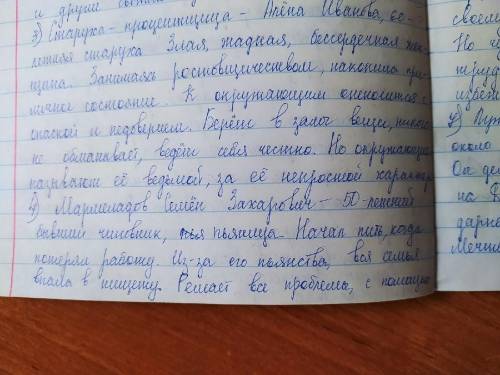 и другим
3) Старуха - процентщица - Алёна Ивановна, 60-
летняя старуха Злая, жадная, бессердечная жен-
щина. Занимаясь ростовщичеством, накопила при-
личное состояние. К окружающим относится с
опаской и недоверием. Берёт в залог вещи, никого
не обманывает, ведёт себя честно. Но окружающие
называют её ведьмой, за её непростой характер.
4) Мармеладов Семён Захарович - 50-летний
бывший чиновник, пьяница. Начал пить, когда
потерял работу. Из-за его пьянства, вся семья
впала в нищету. Решает все проблемы, с помощью
своем
Но
около
Он дел
на
Мечта